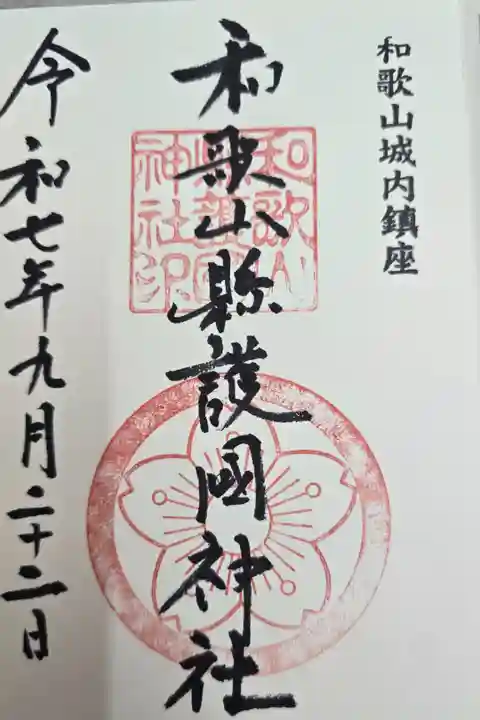 和歌山城内鎮座
和歌山縣護國神社
和歌山
縣護國
神社印
令和七年九月二十二日